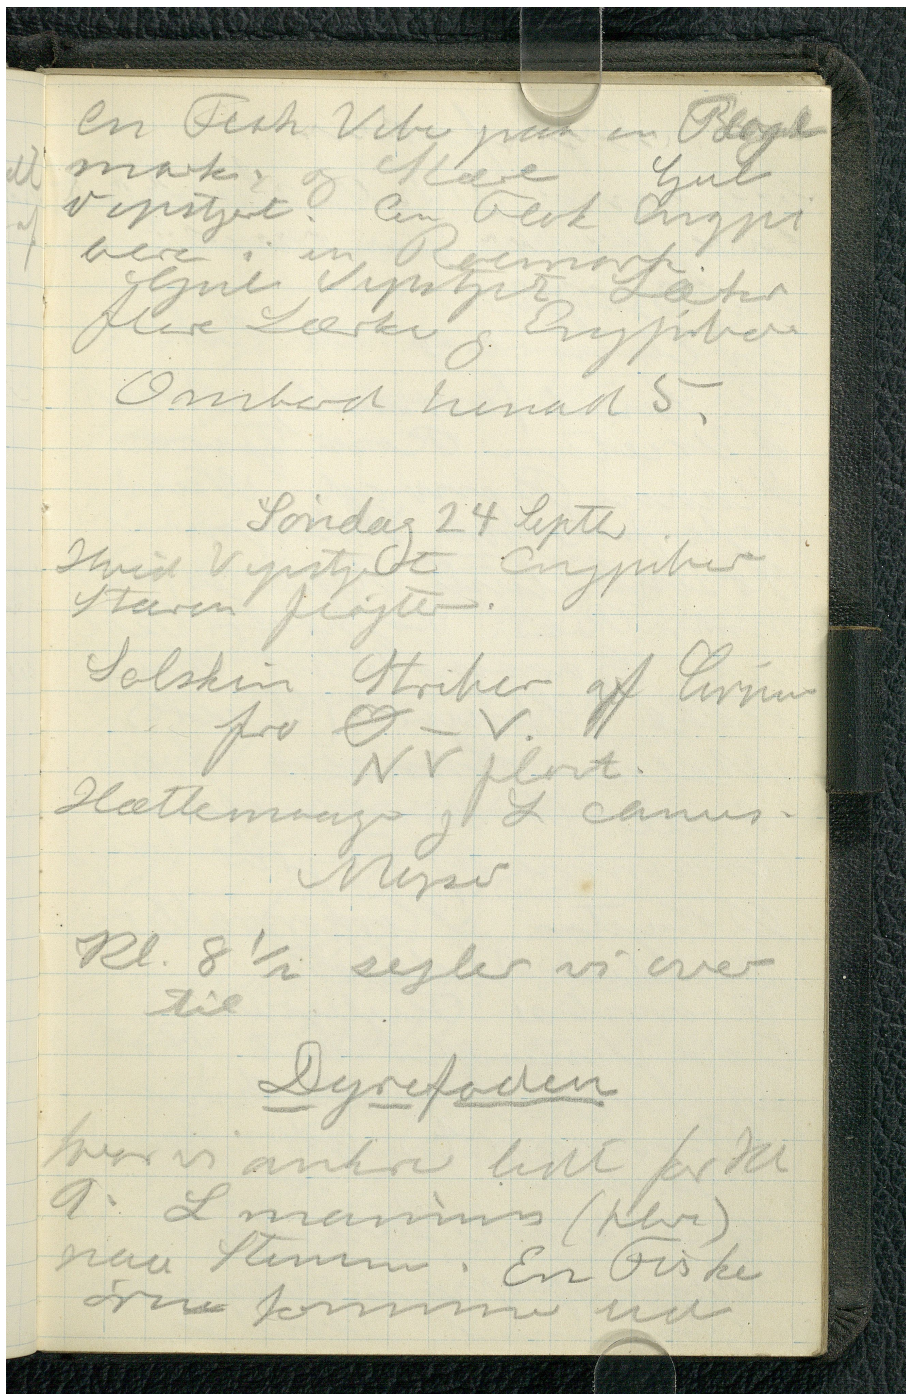 En Flok Viber paa en Bloyel
mark, og Stære Gul
Vipstjert. En Flok Engpi
bere i en Roemark.
Gule Vipstjert Lætter
flere Lærke og Engpibere
Ombord henad 5.
Søndag 24 Septb
Hvid Vipstjert Engpiber
Stæren fløjter.
Solskin Striber af Cirrus
fra Ø – V.
NV flovt.
Hættemaage og L canus.
Mejser
Kl. 8 1/2 sejler vi over
til
Dyrefoden
hvor vi ankre lidt før Kl
9. L marinus (flere)
paa Stenene. En Fiske
ørne kommer ud